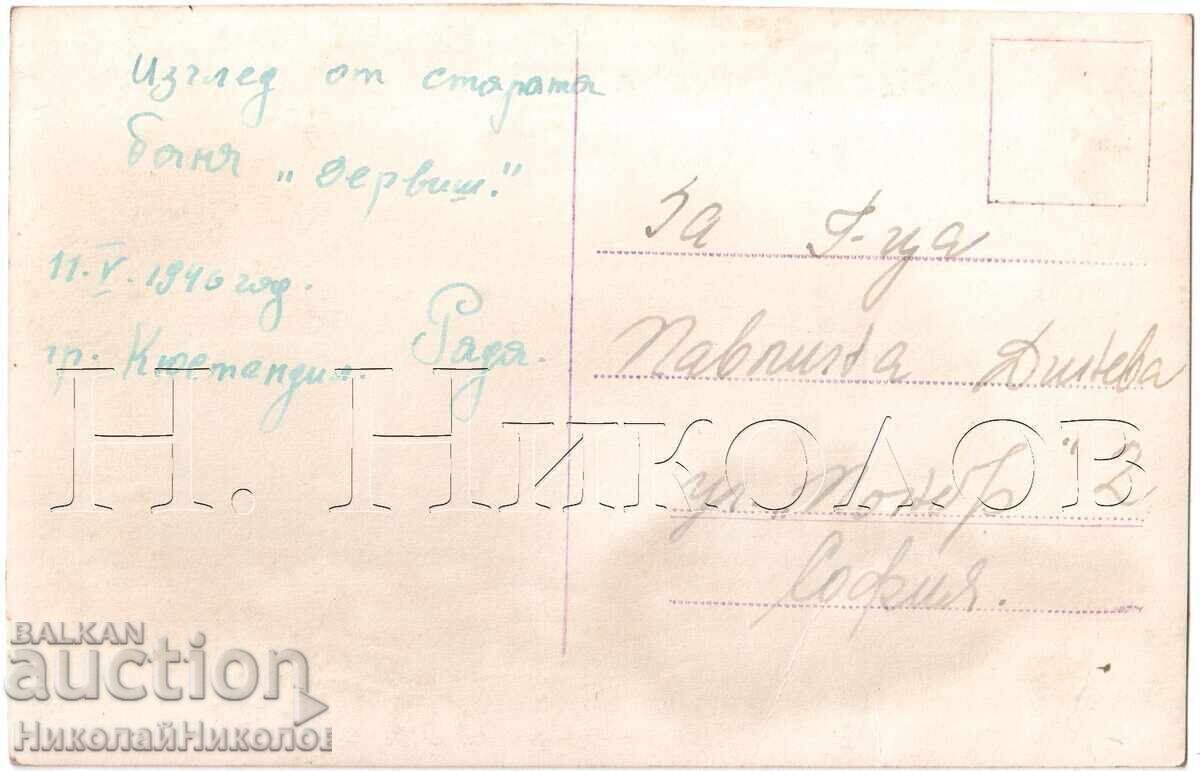 Изглед от старата
баня „Дервиш."
11.V.1940 год.
гр. Кюстендил. Радя.
За Г-ца
Павлинка Динева
ул. 2
София.
Н. Николов
BALKAN
auction
НиколайНиколов